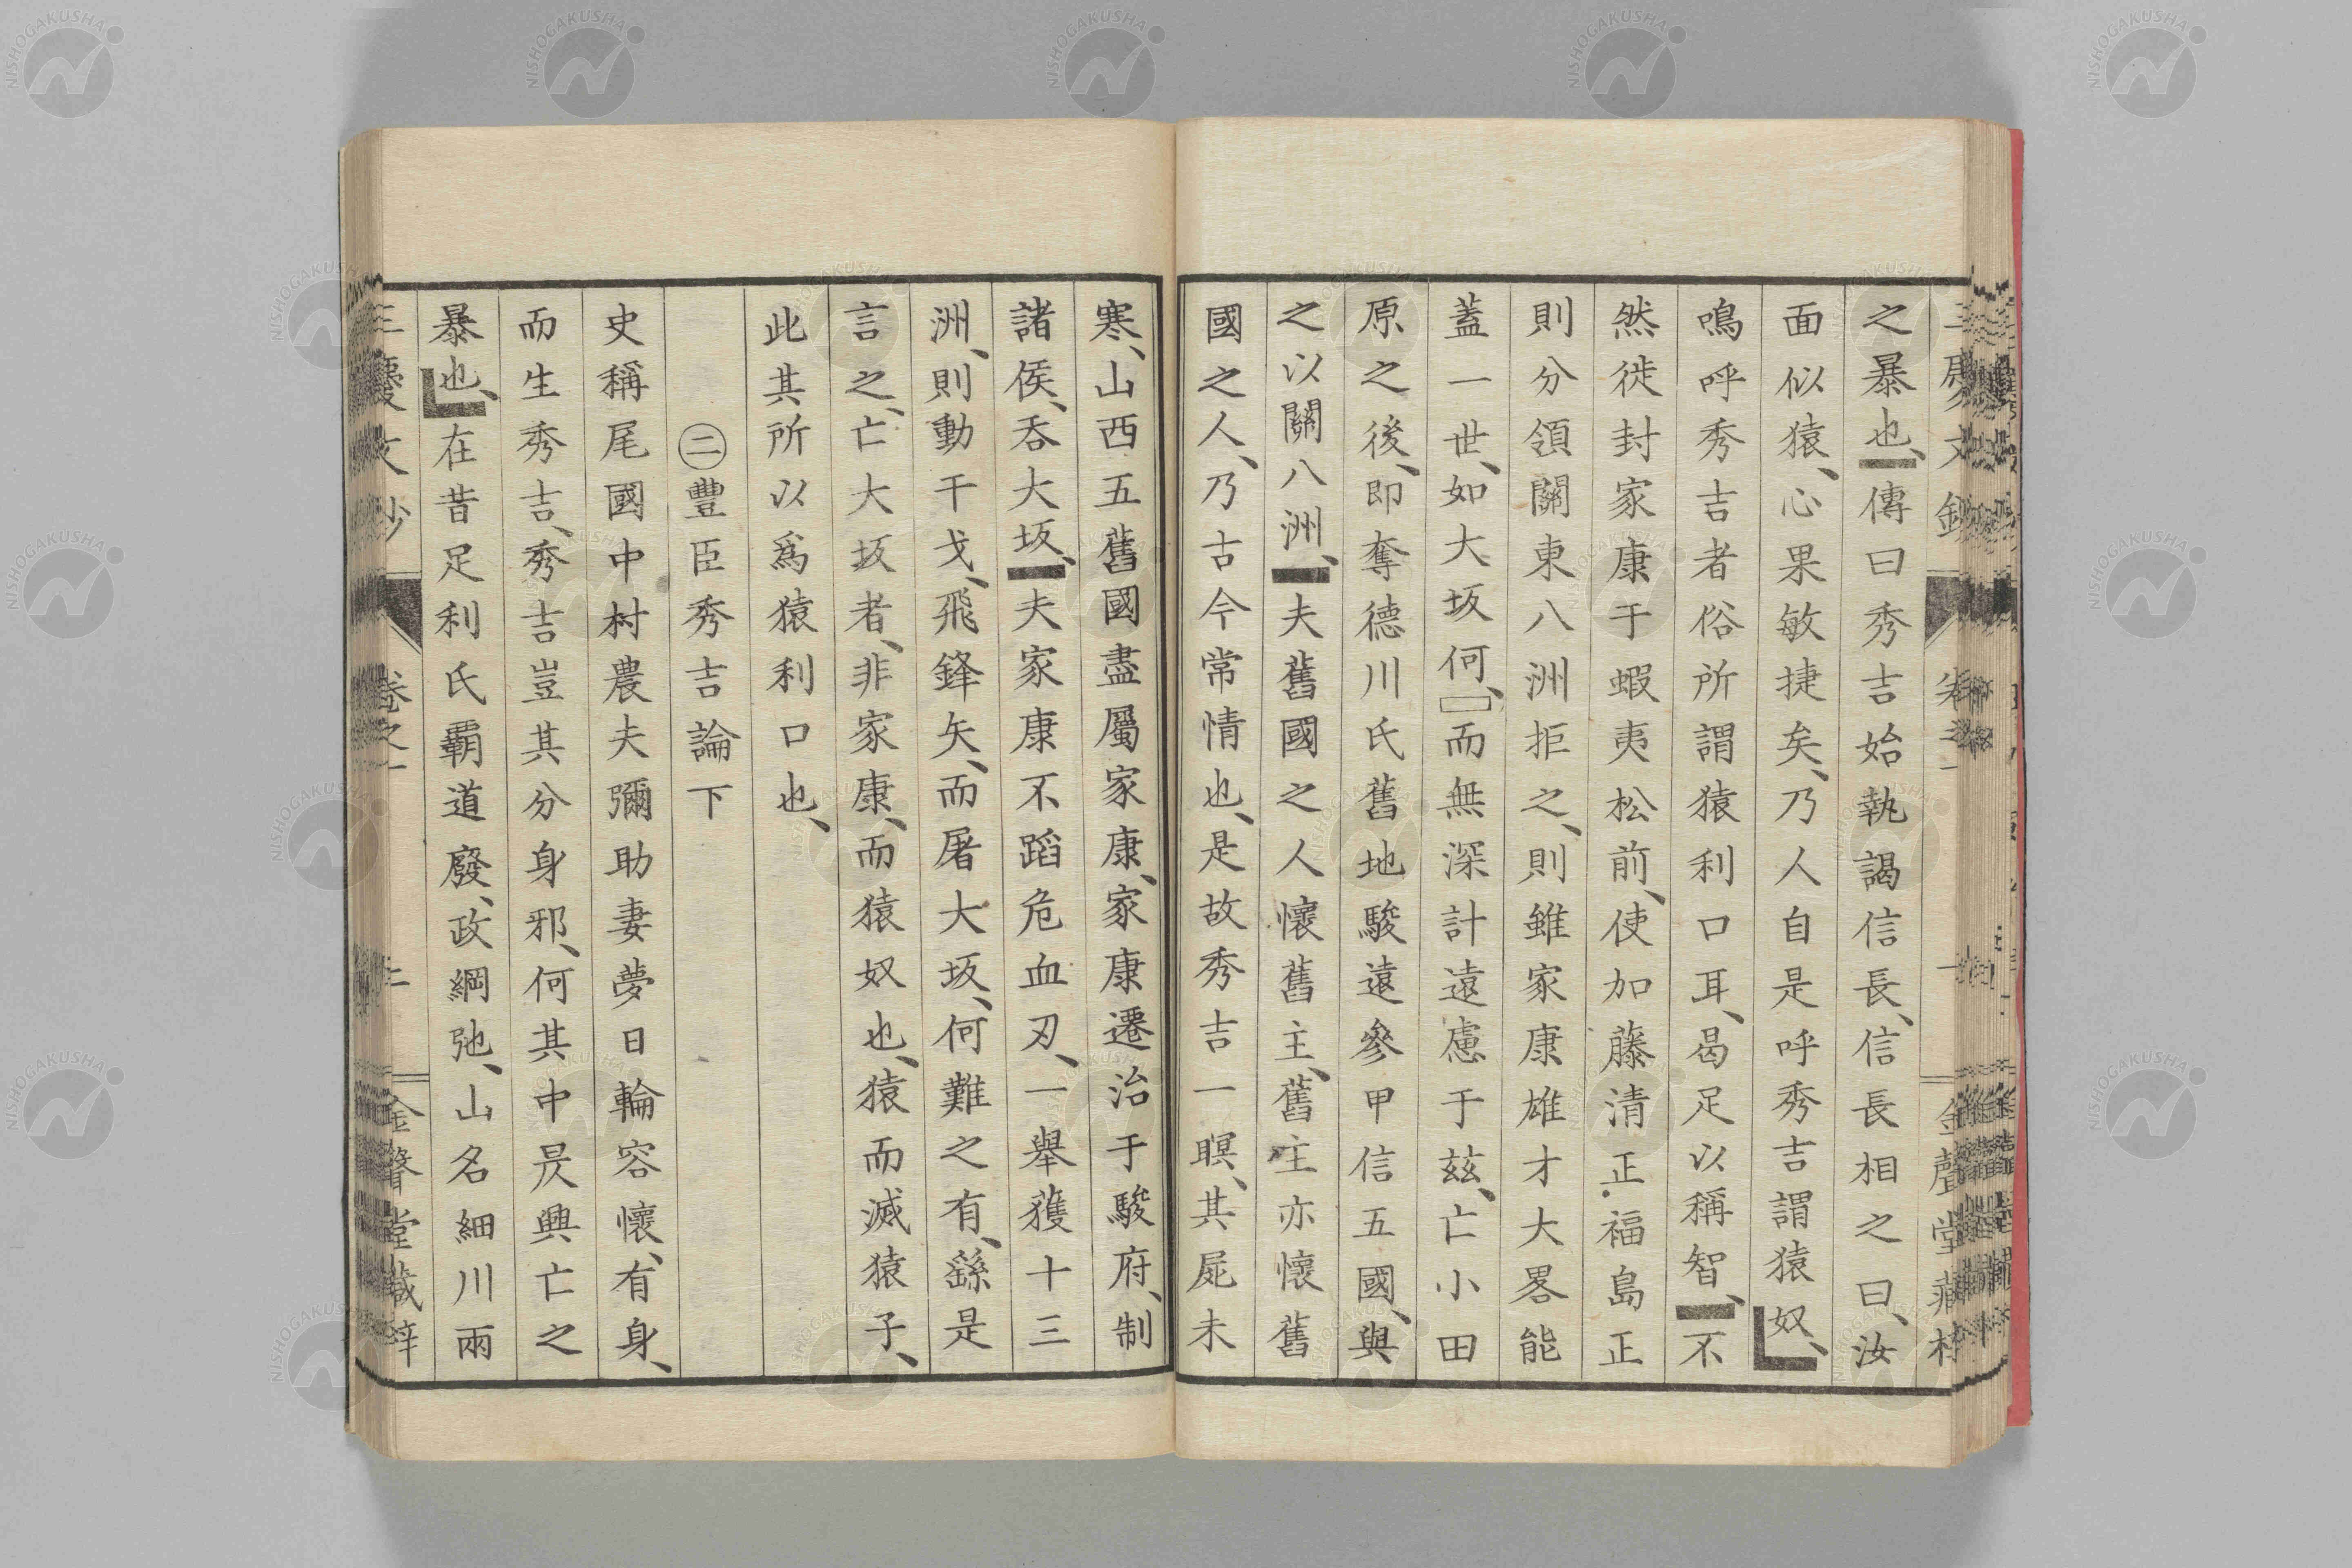 之暴也、傳曰秀吉始執謁信長、信長相之曰、汝
面似猿、心果敏捷矣、乃人自是呼秀吉謂猿奴、
鳴呼秀吉者俗所謂猿利口耳、曷足以稱智、不
然徙封家康于蝦夷松前、使加藤清正福島正
則分領關東八洲拒之、則雖家康雄才大畧能
蓋一世、如大坂何、而無深計遠慮于玆、亡小田
原之後、即奪德川氏舊地駿遠參甲信五國、與
之以關八洲、夫舊國之人懷舊主、舊主亦懷舊
國之人、乃古今常情也、是故秀吉一瞑、其屍未
寒、山西五舊國盡屬家康、家康遷治于駿府、制
諸侯、吞大坂、夫家康不蹈危血刃、一舉獲十三
洲、則動干戈、飛鋒矢、而屠大坂、何難之有、繇是
言之、亡大坂者、非家康、而猿奴也、猿而滅猿子、
此其所以爲猿利口也、
㊁豐臣秀吉論下
史稱尾國中村農夫彌助妻夢日輪容懷、有身、
而生秀吉、秀吉豈其分身邪、何其中昃興亡之
暴也、在昔足利氏霸道廢、政綱弛、山名細川兩
三慶文鈔
卷之一
金聲堂藏梓
NISHOGAKUSHA